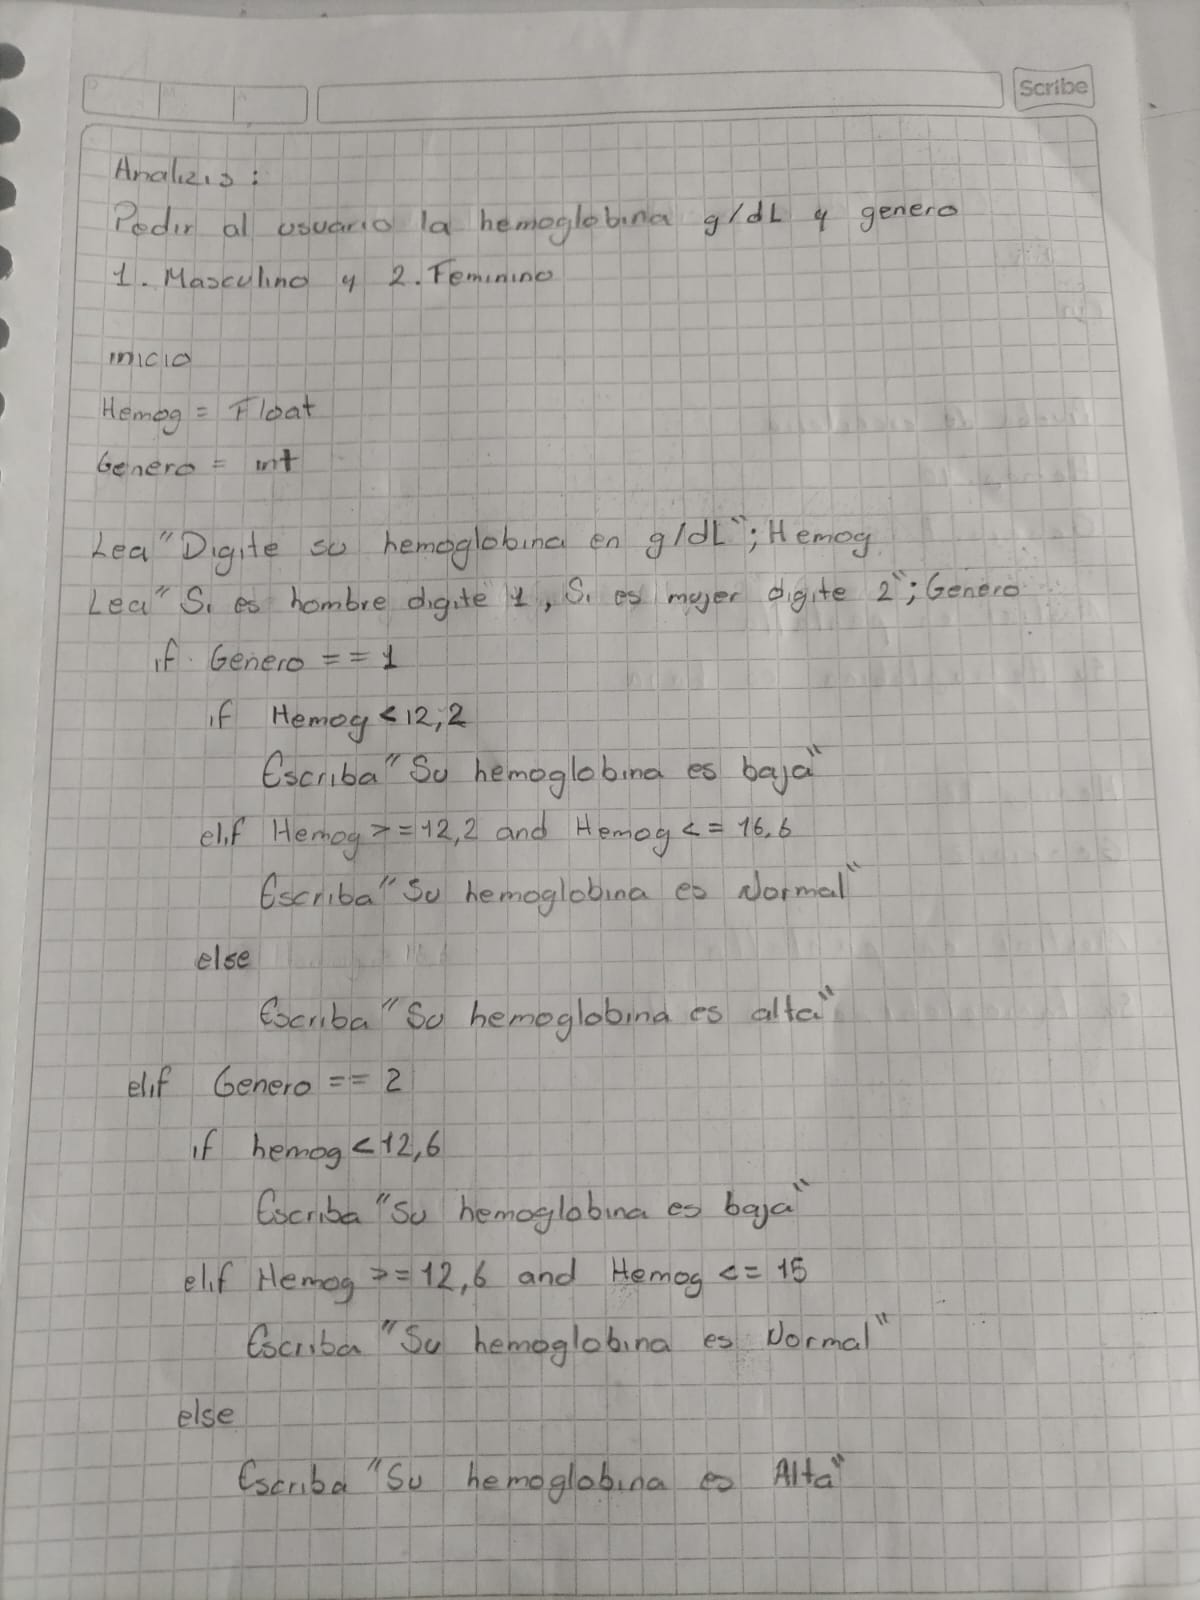 Scribe
Analizis:
Pedir al usuario la hemoglobina g/dL y genero
1. Masculino y 2. Feminino
inicio
Hemog = Float
Genero = int
Lea "Digite su hemoglobina en g/dL"; Hemog
Lea "Si es hombre digite 1, Si es mujer digite 2"; Genero
if Genero == 1
if Hemog < 12,2
Escriba "Su hemoglobina es baja"
elif Hemog >= 12,2 and Hemog <= 16,6
Escriba "Su hemoglobina es Normal"
else
Escriba "Su hemoglobina es alta"
elif Genero == 2
if hemog < 12,6
Escriba "Su hemoglobina es baja"
elif Hemog >= 12,6 and Hemog <= 15
Escriba "Su hemoglobina es Normal"
else
Escriba "Su hemoglobina es Alta"